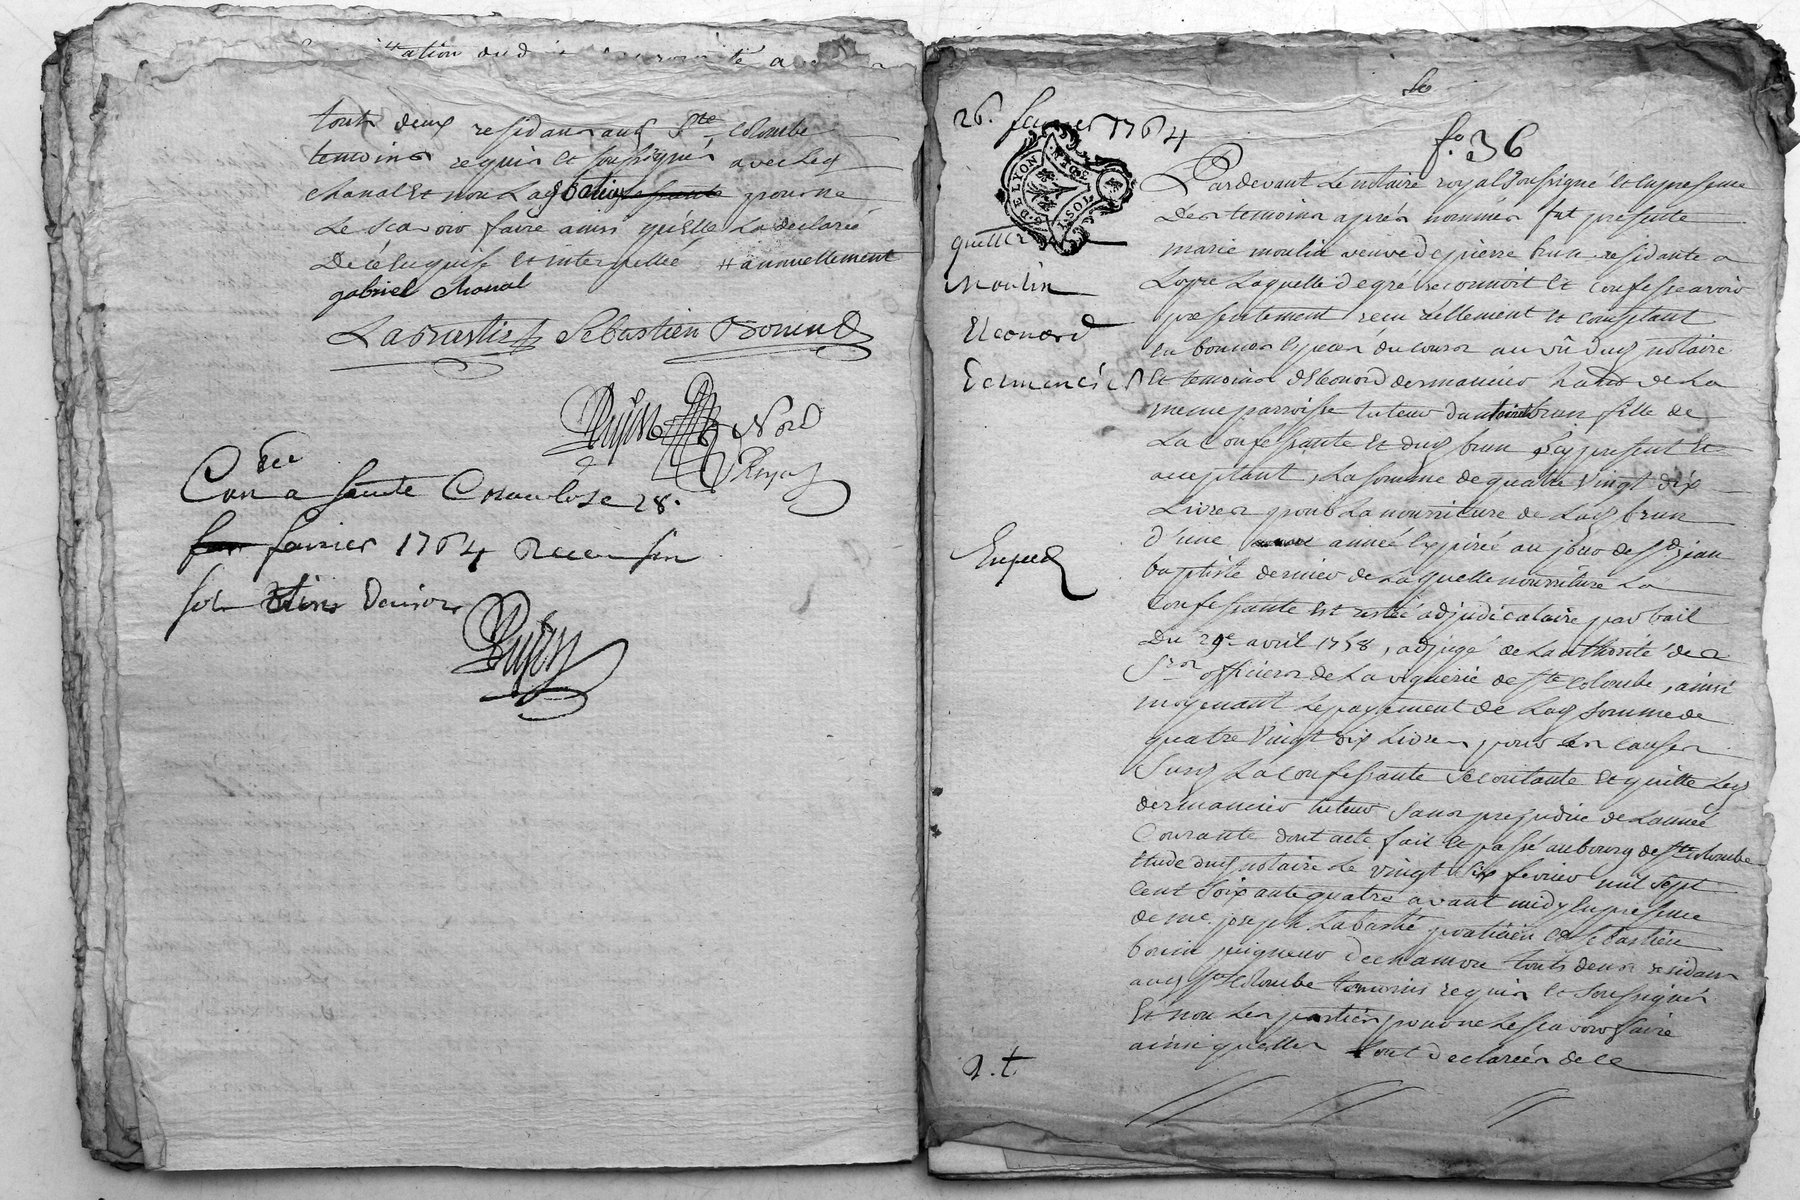 tation dud
touts deux residans aud Ste colombe
temoins requis et soussignés avec led
chanal et non lad Batie pour ne
le scavoir faire ainsi qu'elle la declaré
De ce enquise et interpellée # annuellement
gabriel chanal
Labastie Sebastien Bonin
Pujos Nore
Royal
Con a sainte Colombe le 28.
fevrier 1764 Receu six
sols Deniers
Pujos
26. fevrier 1764
f.º 36
GEN. DE LYON
DEUX SOLS
quittce
Moulin
Eleonord
Dermanciés
Exped
Pardevant le notaire royal soussigné et en presence
des temoins aprés nommés fut presente
marie moulin veuve de pierre brun residante a
Loyre laquelle de gré reconnoit et confesse avoir
presentement receu réellement et comptant
en bonnes especes du cours au vû dud notaire
et temoins d'Eleonord dermancies habt de la
meme parroisse tuteur d'antoinete brun fille de
la confessante et dud brun icy present et
acceptant, la somme de quatre vingt dix
Livres pour la nourriture de lad brun
d'une année expirée au jour de St jean
baptiste dernier de laquelle nourriture la
confessante est restée adjudicataire par bail
du 29e avril 1758, adjugé de l'authorité de
Srs officiers de la viguerie de Ste Colombe, ainsi
moyenant le payement de lad somme de
quatre vingt dix livres pour les causes
susd la confessante se contante et quitte led
dermancies tuteur sans prejudice de l'année
Courante dont acte fait et passé au bourg de Ste colombe
étude dud notaire le vingt six fevrier mil sept
cent soixante quatre avant midy en presence
de me joseph Labastie praticien et sebastien
bonin peigneur de chanvre touts deux residans
aud Ste colombe temoins requis et soussignés
Et non les parties pour ne le scavoir faire
ainsi quelles l'ont declarées de ce